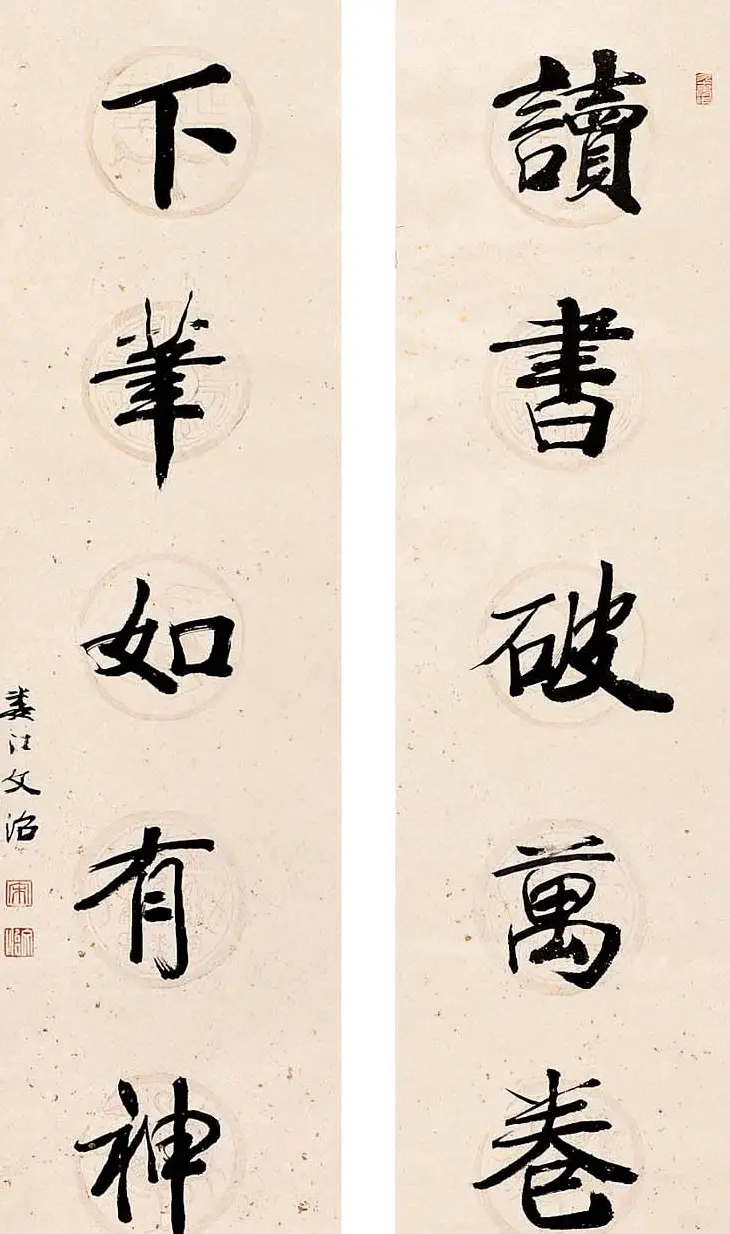 讀書破萬卷
下筆如有神
婁江文治
宋